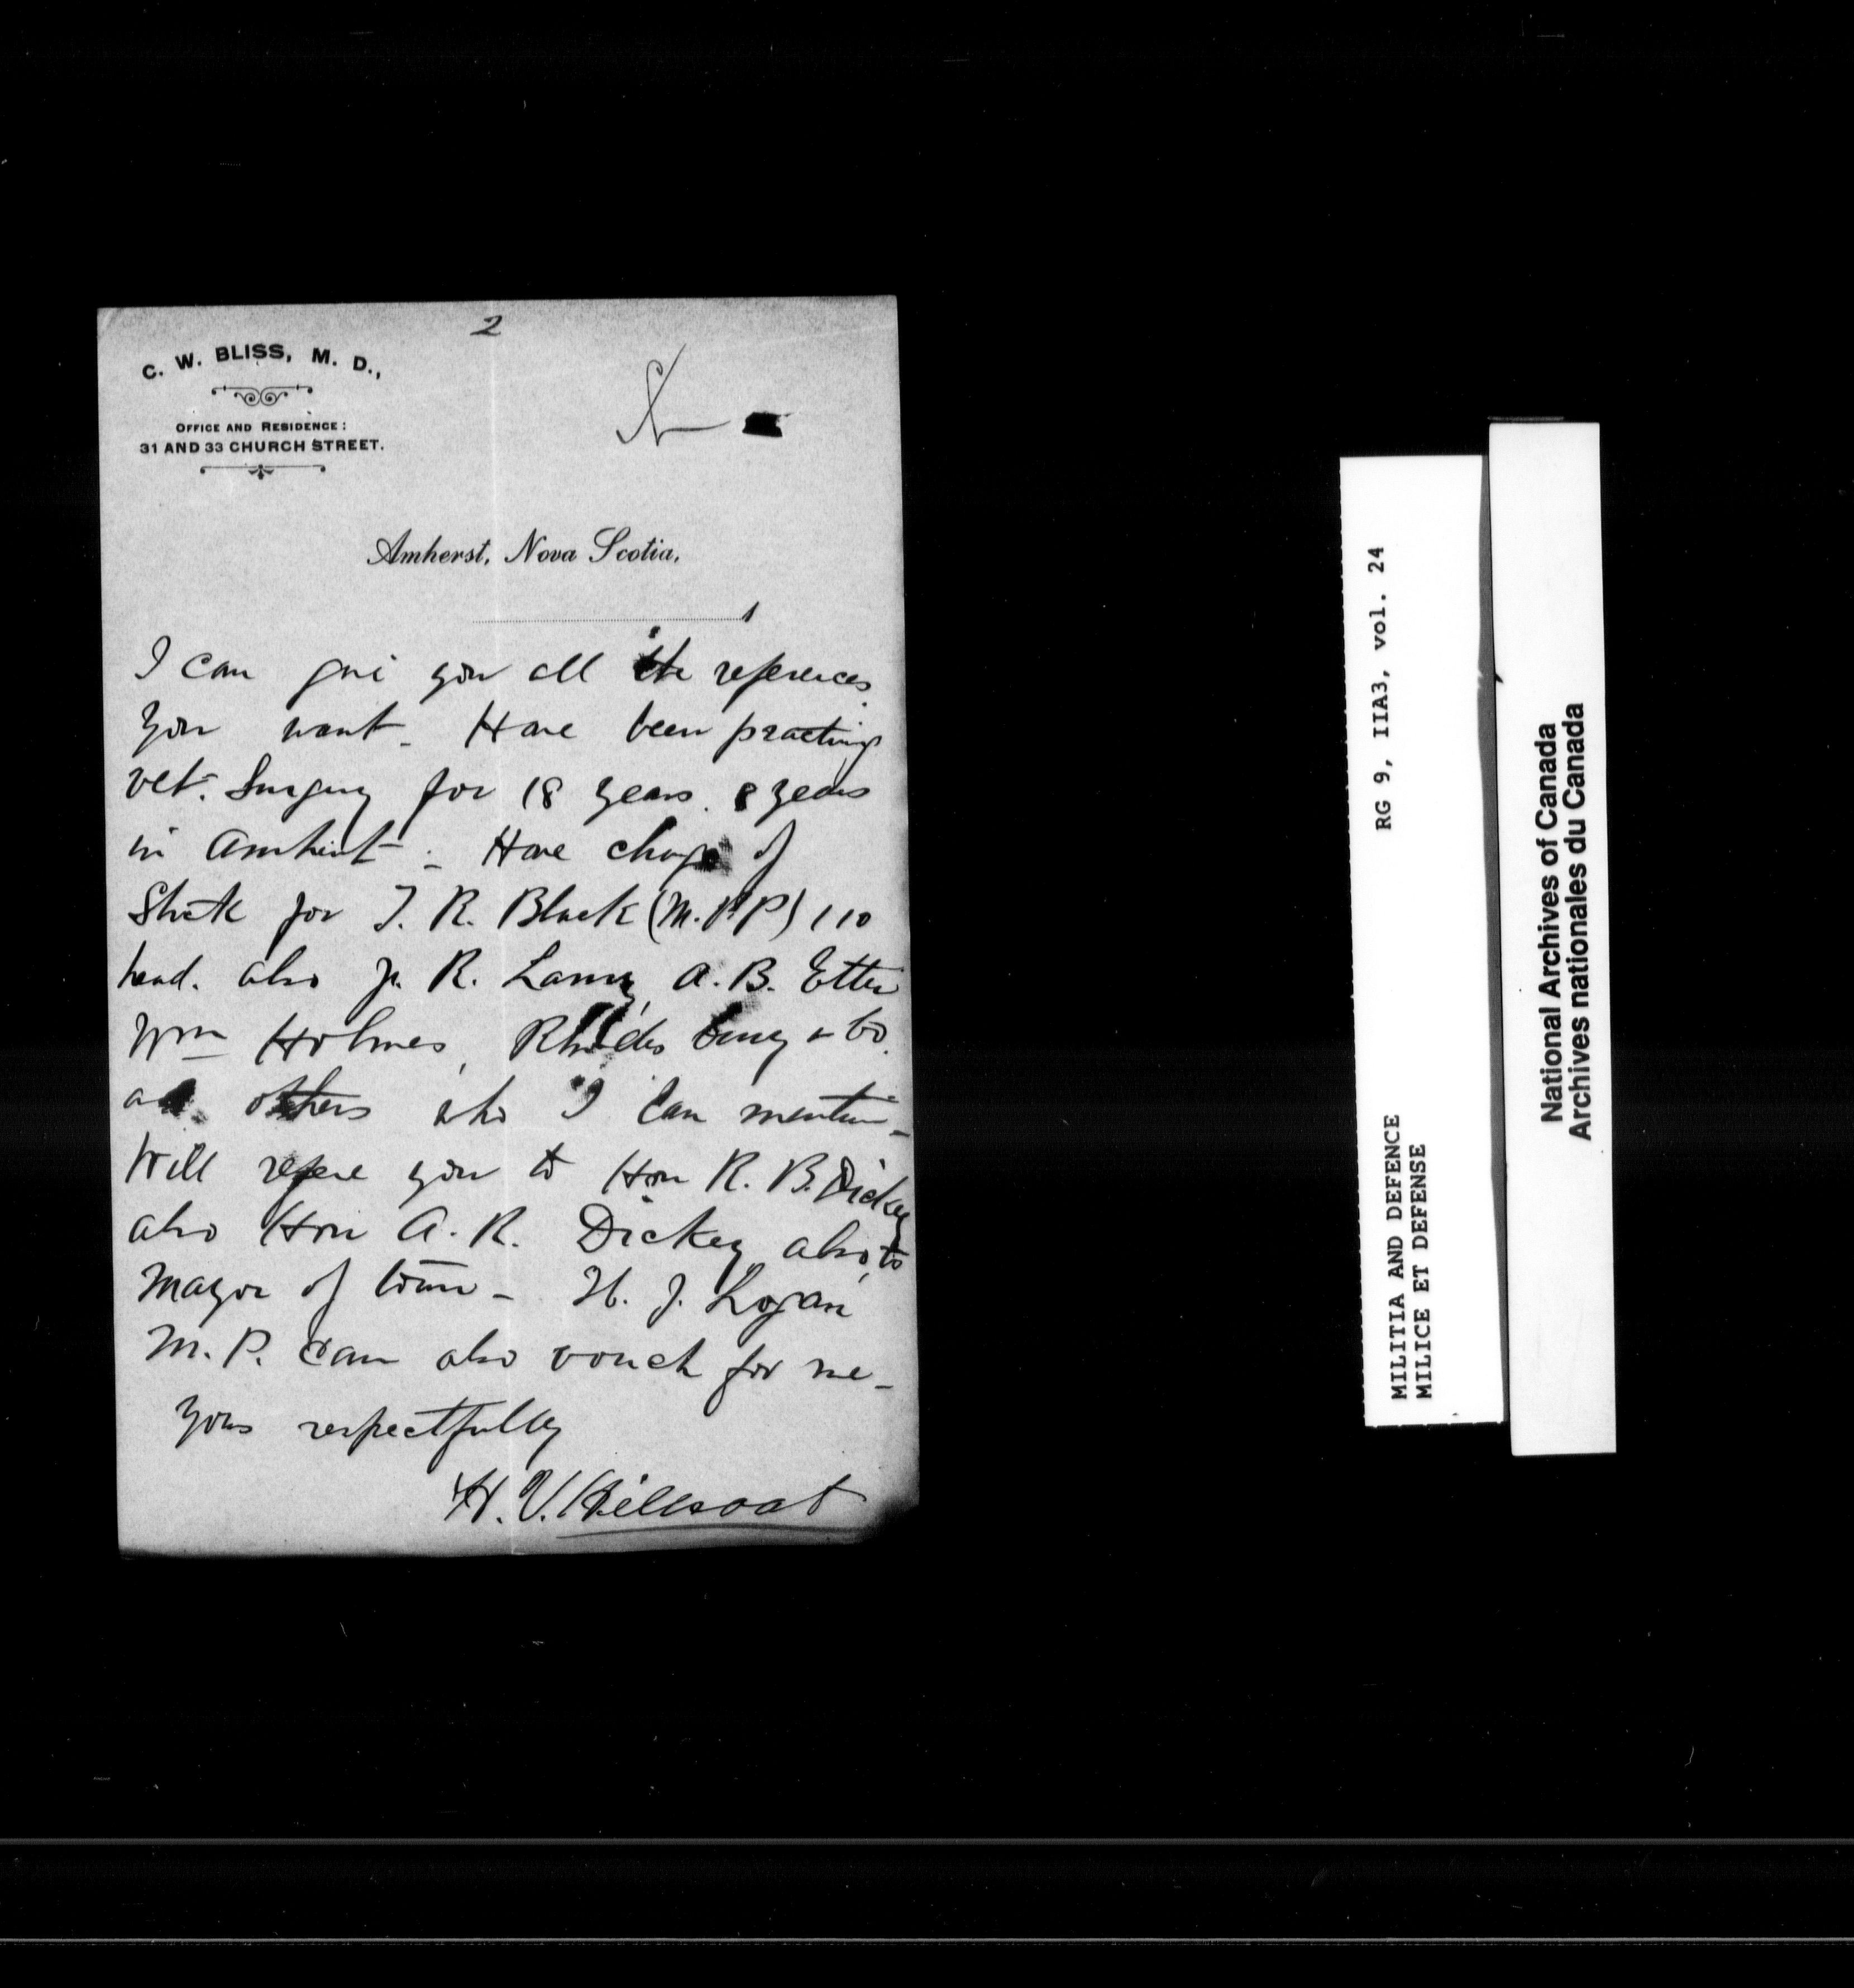 2
C. W. BLISS, M. D.,
OFFICE AND RESIDENCE:
31 AND 33 CHURCH STREET.
Amherst, Nova Scotia,
1
I can give you all the references
you want. Have been practing
vet. Surgery for 18 years. 8 years
in Amherst - Have charge of
Stock for T. R. Black (M.P.P) 110
head. also J. R. Lamy, A. B. Etter
Wm Holmes, Rhodes Curry & Co.
and others who I can mention -
Will refere you to Hon R. B. Dickey
also Hon A. R. Dickey also to
Mayor of town - H. J. Logan
M. P. can also vouch for me -
Yours respectfully
H. V. Hillcoat
MILITIA AND DEFENCE RG 9, IIA3, vol. 24
MILICE ET DEFENSE
National Archives of Canada
Archives nationales du Canada